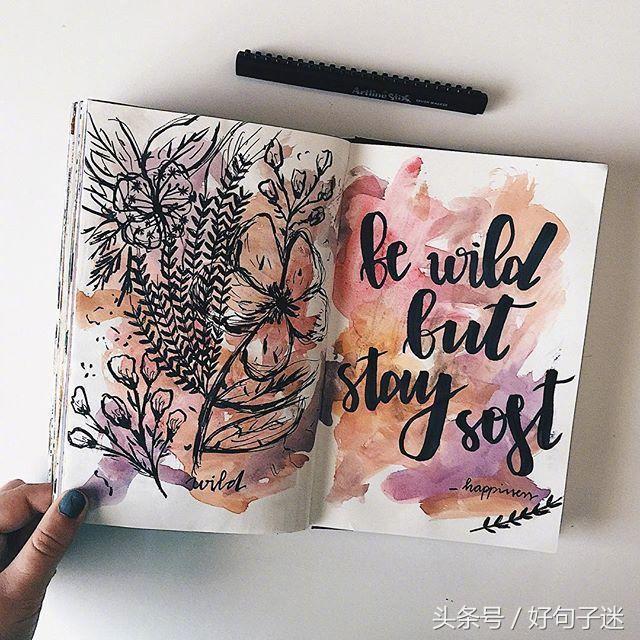 Artline Stix
wild
be wild
but
stay
soft
- happiness
头条号 / 好句子迷